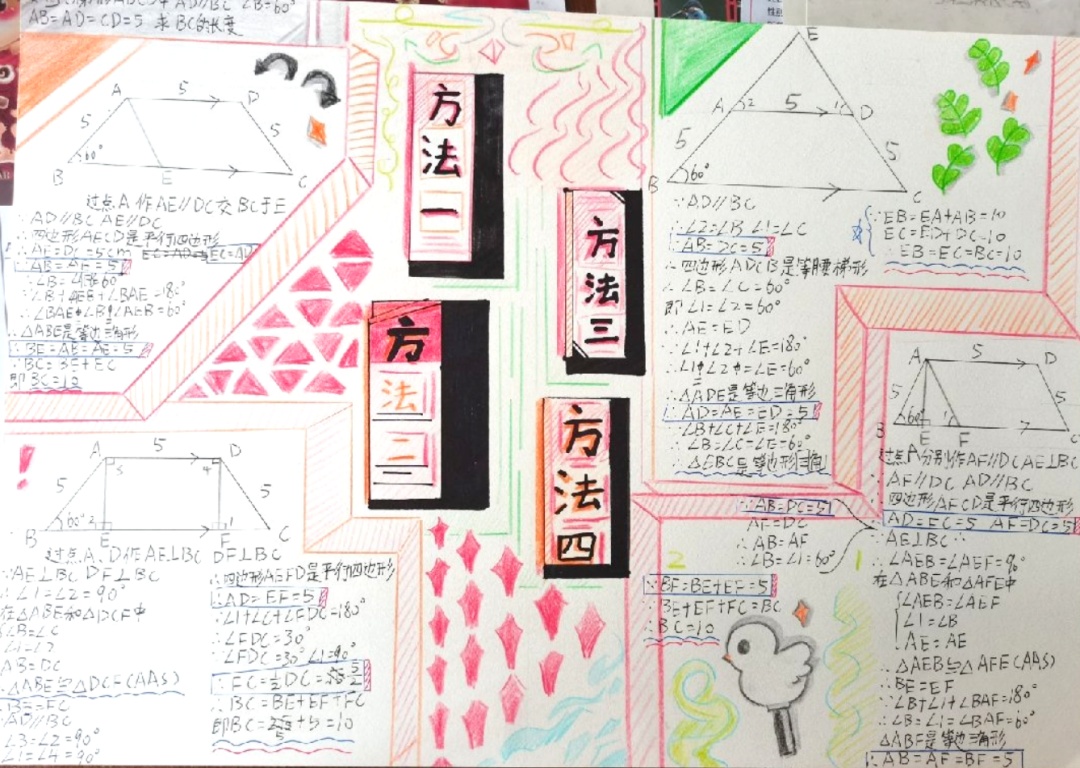 AB=AD=CD=5 求BC的长度
方法一
A 5 D
5 5
60°
B E C
过点A作AE//DC交BC于E
∵AD//BC AE//DC
∴四边形AECD是平行四边形
∴AE=DC=5cm
AB=AE=5
∠BAE=∠B=∠AEB=60°
∴△ABE是等边三角形
∴BE=AE=AE=5
∴BC=BE+EC
即BC=10
方法二
A 5 D
5 5
60° 2 1
B E F C
过点A、D作AE⊥BC DF⊥BC
∵AE⊥BC DF⊥BC
∴∠1=∠2=90°
在△ABE和△DCF中
∠B=∠C
∠1=∠2
AB=DC
∴△ABE≌△DCF(AAS)
∴BE=FC
AD//BC
∠3=∠2=90°
∠1=∠4=90°
∴四边形AEFD是平行四边形
∴AD=EF=5
∴∠1+∠C+∠FDC=180°
∴∠FDC=30°
∵∠FDC=30° ∠1=90°
∴BC=BE+EF+FC
方法三
E
A 2 5 1 D
5 5
60°
B C
∵AD//BC
∴∠2=∠B ∠1=∠C
AB=DC=5
∴四边形ADCB是等腰梯形
∴∠B=∠C=60°
即∠1=∠2=60°
∴AE=ED
∵∠1+∠2+∠E=180°
∴∠1=∠2=∠E=60°
∴△ADE是等边三角形
∴AD=AE=ED=5
∵∠B+∠C+∠E=180°
∴∠B=∠C=∠E=60°
∵EB=EA+AB=10
EC=ED+DC=10
∴EB=EC=BC=10
方法四
A 5 D
5 5
60° 1
B E F C
过点A分别作AF//DC AE⊥BC
∵AF//DC AD//BC
∴四边形AFCD是平行四边形
∴AD=FC=5 AF=DC=5
∵AE⊥BC
∴∠AEB=∠AEF=90°
在△ABE和△AFE中
∠AEB=∠AEF
∠1=∠B
AE=AE
∴△AEB≌△AFE(AAS)
∴BE=EF
∵∠B+∠1+∠BAF=180°
∴∠B=∠1=∠BAF=60°
∴△ABF是等边三角形
∴AB=AF=BF=5
∵AB=DC=5
AF=DC
∴AB=AF
∴∠B=∠1=60°
∵BF=BE+EF=5
∵BE+EF+FC=BC
∴BC=10
2
1